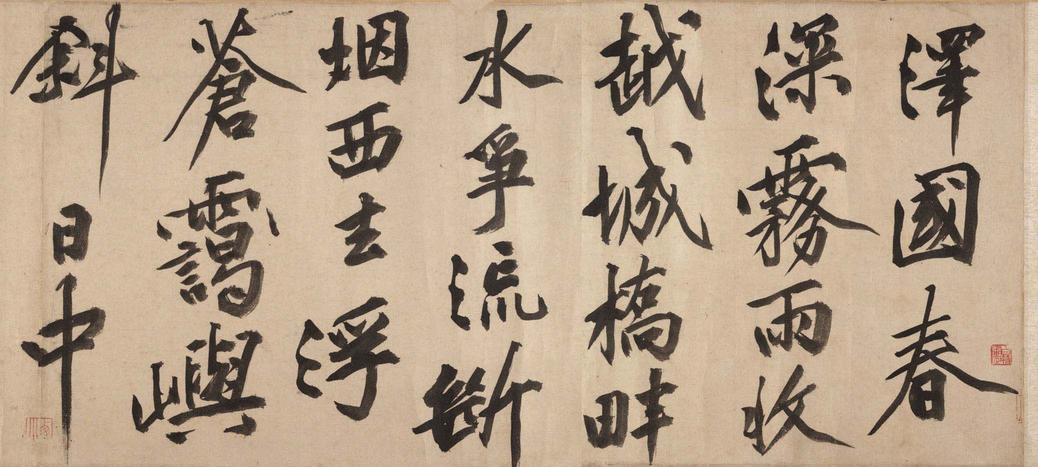 澤國春
深霧雨收
越城橋畔
水爭流斷
烟西去浮
蒼靄嶼
斜日中